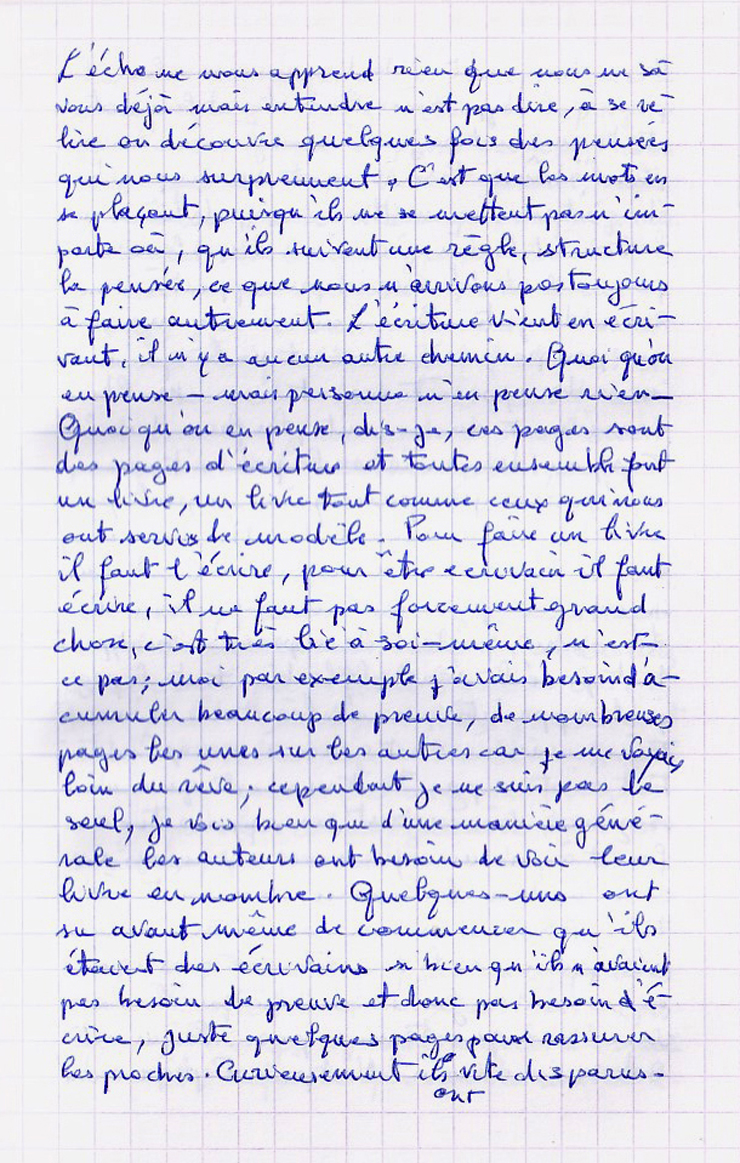 L'écho ne nous apprend rien que nous ne sa-
vous déjà mais entendre n'est pas dire, à se re-
lire on découvre quelques fois des pensées
qui nous surprennent. C'est que les mots en
se plaçant, puisqu'ils ne se mettent pas n'im-
porte où, qu'ils suivent une règle, structure
la pensée, ce que nous n'arrivons pas toujours
à faire autrement. L'écriture vient en écri-
vant, il n'y a aucun autre chemin. Quoi qu'on
en pense – mais personne n'en pense rien –
Quoi qu'on en pense, dis-je, ces pages sont
des pages d'écriture et toutes ensemble font
un livre, un livre tout comme ceux qui nous
ont servis de modèle. Pour faire un livre
il faut l'écrire, pour être écrivain il faut
écrire, il ne faut pas forcement grand
chose, c'est très lié à soi-même, n'est-
ce pas; moi par exemple j'avais besoin d'a-
cumuler beaucoup de preuve, de nombreuses
pages les unes sur les autres car je me voyais
loin du rêve; cependant je ne suis pas le
seul, je vois bien que d'une manière géné-
rale les auteurs ont besoin de voir leur
livre en nombre. Quelques-uns ont
su avant même de commencer qu'ils
étaient des écrivains si bien qu'ils n'avaient
pas besoin de preuve et donc pas besoin d'é-
crire, juste quelques pages pour rassurer
les proches. Curieusement ils ont vite disparus.